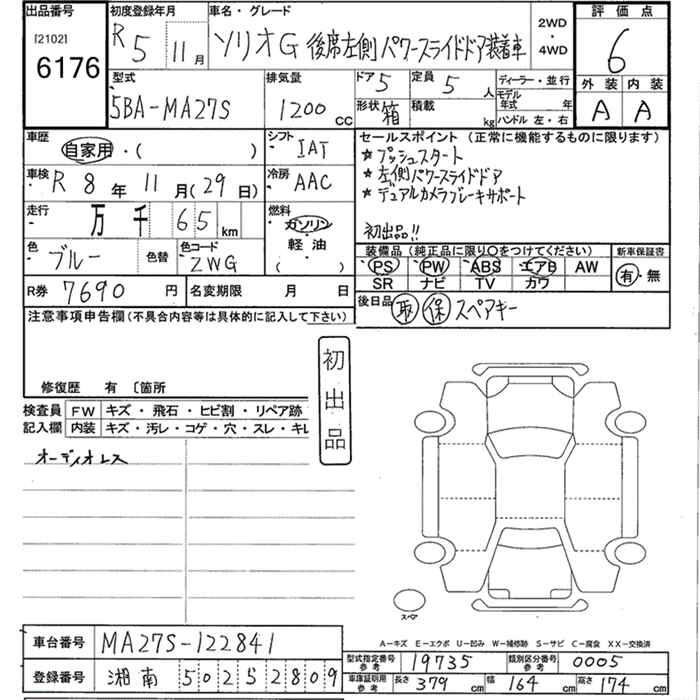 出品番号 初度登録年月 車名・グレード 2WD・4WD 評価点
[2102] 6176
R 5 11月 ソリオG 後席左側パワースライドドア装着車 6
型式 排気量 ドア 5 定員 5人 ディーラー・並行 外装 内装
5BA-MA27S 1200cc 形状 箱 積載 kg モデル年式 年 ハンドル 左・右 A A
車歴 自家用・( ) シフト IAT
セールスポイント(正常に機能するものに限ります)
★プッシュスタート
★左側パワースライドドア
★デュアルカメラブレーキサポート
初出品!!
車検 R 8年 11月(29日) 冷房 AAC
走行 万 千 65 km 燃料 ガソリン 軽油 ( )
色 ブルー 色替 色コード ZWG
装備品(純正品に限り○をつけてください) 新車保証書
PS PW ABS エアB AW 有・無
SR ナビ TV カワ
R券 7690円 名変期限 月 日
後日品 取 保 スペアキー
注意事項申告欄(不具合内容等は具体的に記入して下さい)
修復歴 有 〔箇所
初出品
検査員記入欄 FW キズ・飛石・ヒビ割・リペア跡
内装 キズ・汚レ・コゲ・穴・スレ・キレ
オーディオレス
スペア
A-キズ E-エクボ U-凹み W-補修跡 S-サビ C-腐食 XX-交換済
車台番号 MA27S-122841
登録番号 湘南 50252809
型式指定番号 参考 19735 類別区分番号 参考 0005
車庫証明用 参考 長さ 379cm 幅 164cm 高さ 174cm